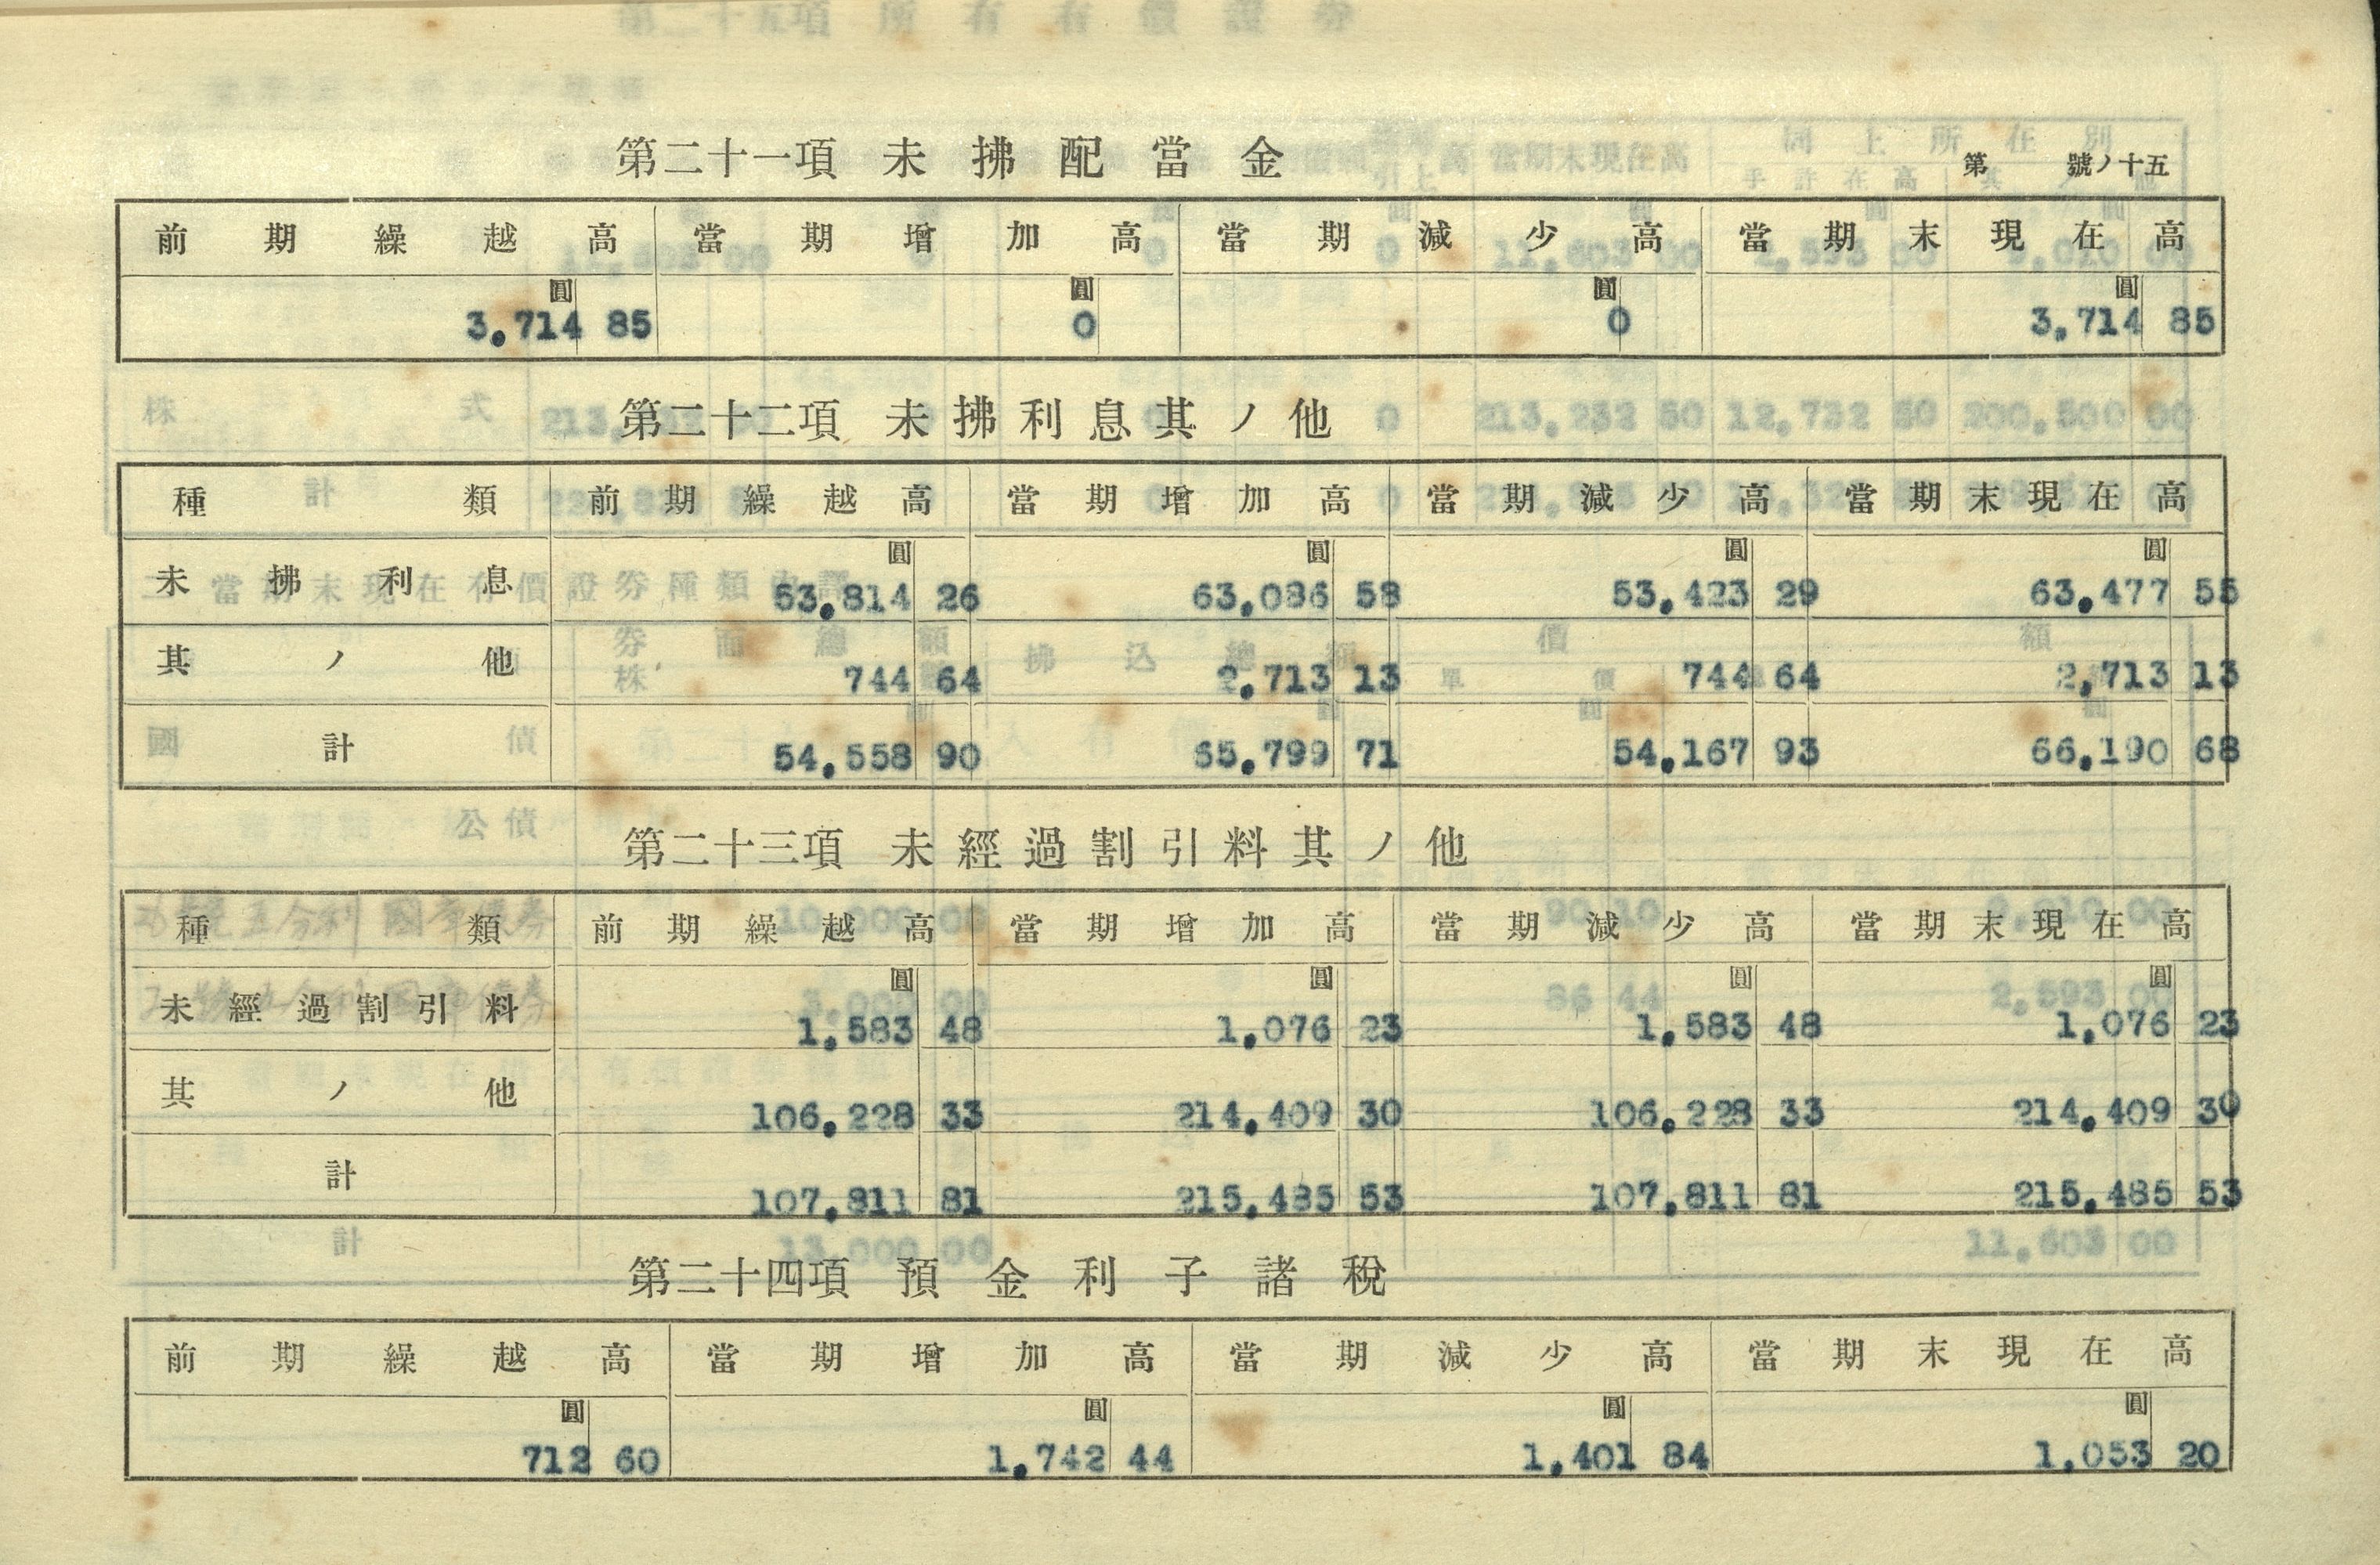 第二十一項 未拂配當金
第 號ノ十五
前期繰越高 當期增加高 當期減少高 當期末現在高
圓 圓 圓 圓
3,714 85 0 0 3,714 85
第二十二項 未拂利息其ノ他
種類 前期繰越高 當期增加高 當期減少高 當期末現在高
圓 圓 圓 圓
未拂利息 53,814 26 63,086 58 53,423 29 63,477 55
其ノ他 744 64 2,713 13 744 64 2,713 13
計 54,558 90 65,799 71 54,167 93 66,190 68
第二十三項 未經過割引料其ノ他
種類 前期繰越高 當期增加高 當期減少高 當期末現在高
圓 圓 圓 圓
未經過割引料 1,583 48 1,076 23 1,583 48 1,076 23
其ノ他 106,228 33 214,409 30 106,228 33 214,409 30
計 107,811 81 215,485 53 107,811 81 215,485 53
第二十四項 預金利子諸稅
前期繰越高 當期增加高 當期減少高 當期末現在高
圓 圓 圓 圓
712 60 1,742 44 1,401 84 1,053 20